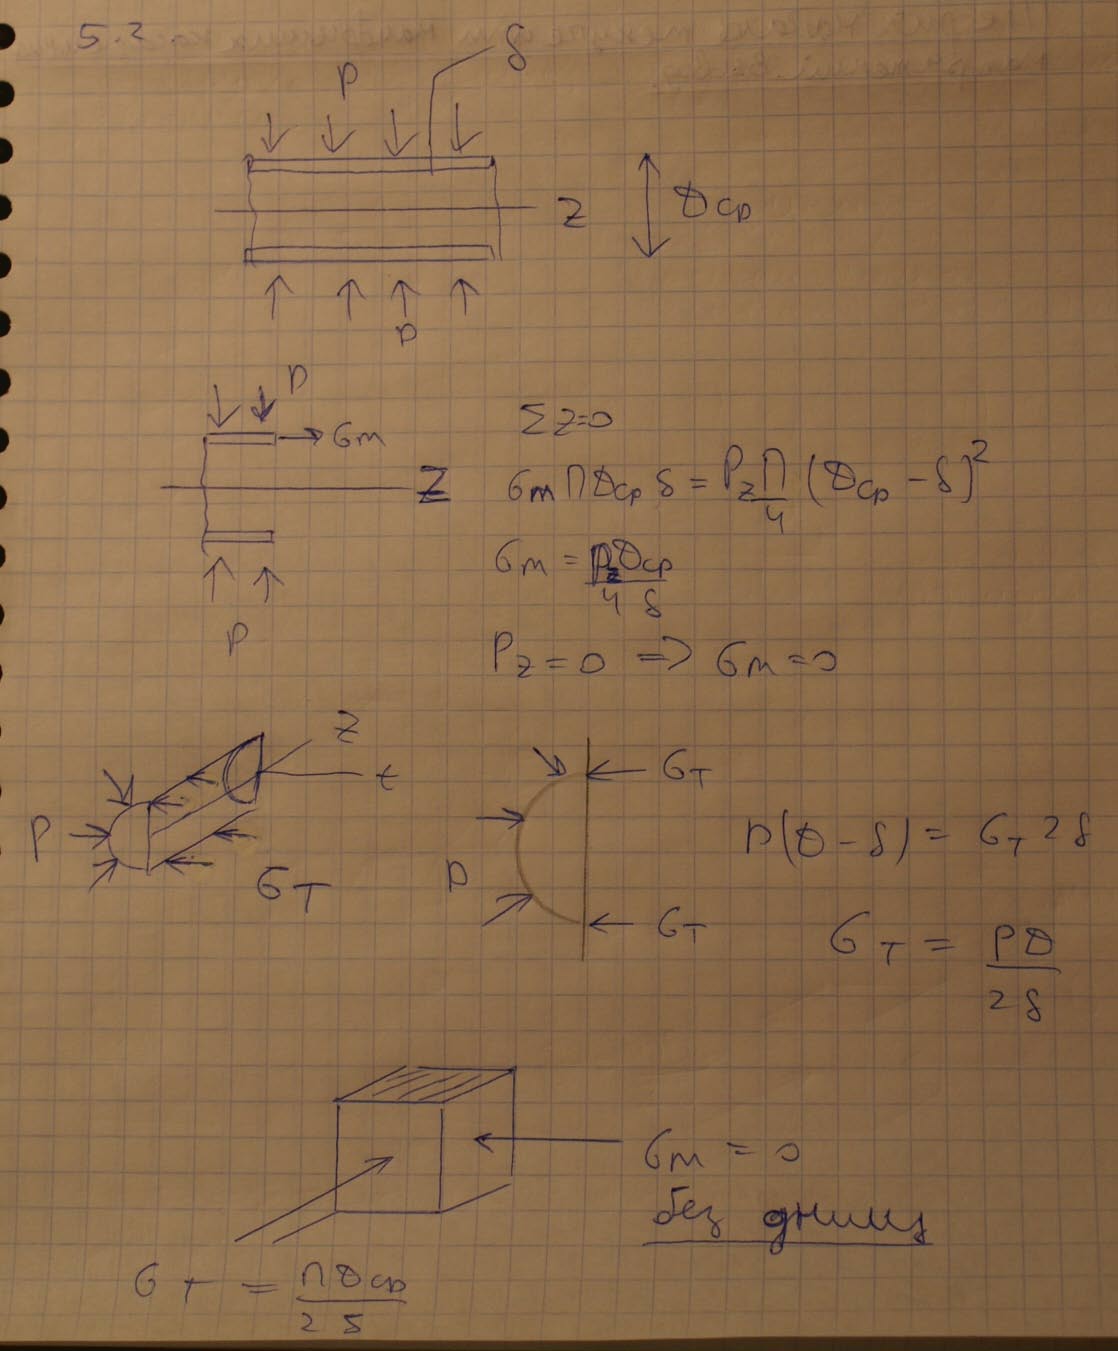 5.2
δ
p
Z
Dср
p
p
σm
Z
p
Σz=0
σm П Dср δ = Pz П/4 (Dср - δ)²
σm = Pz Dср / 4 δ
Pz = 0 => σm = 0
Z
t
P
σT
σT
p
σT
p(D - δ) = σT 2δ
σT = PD / 2δ
σm = 0
без днищ
σT = П Dср / 2 δ